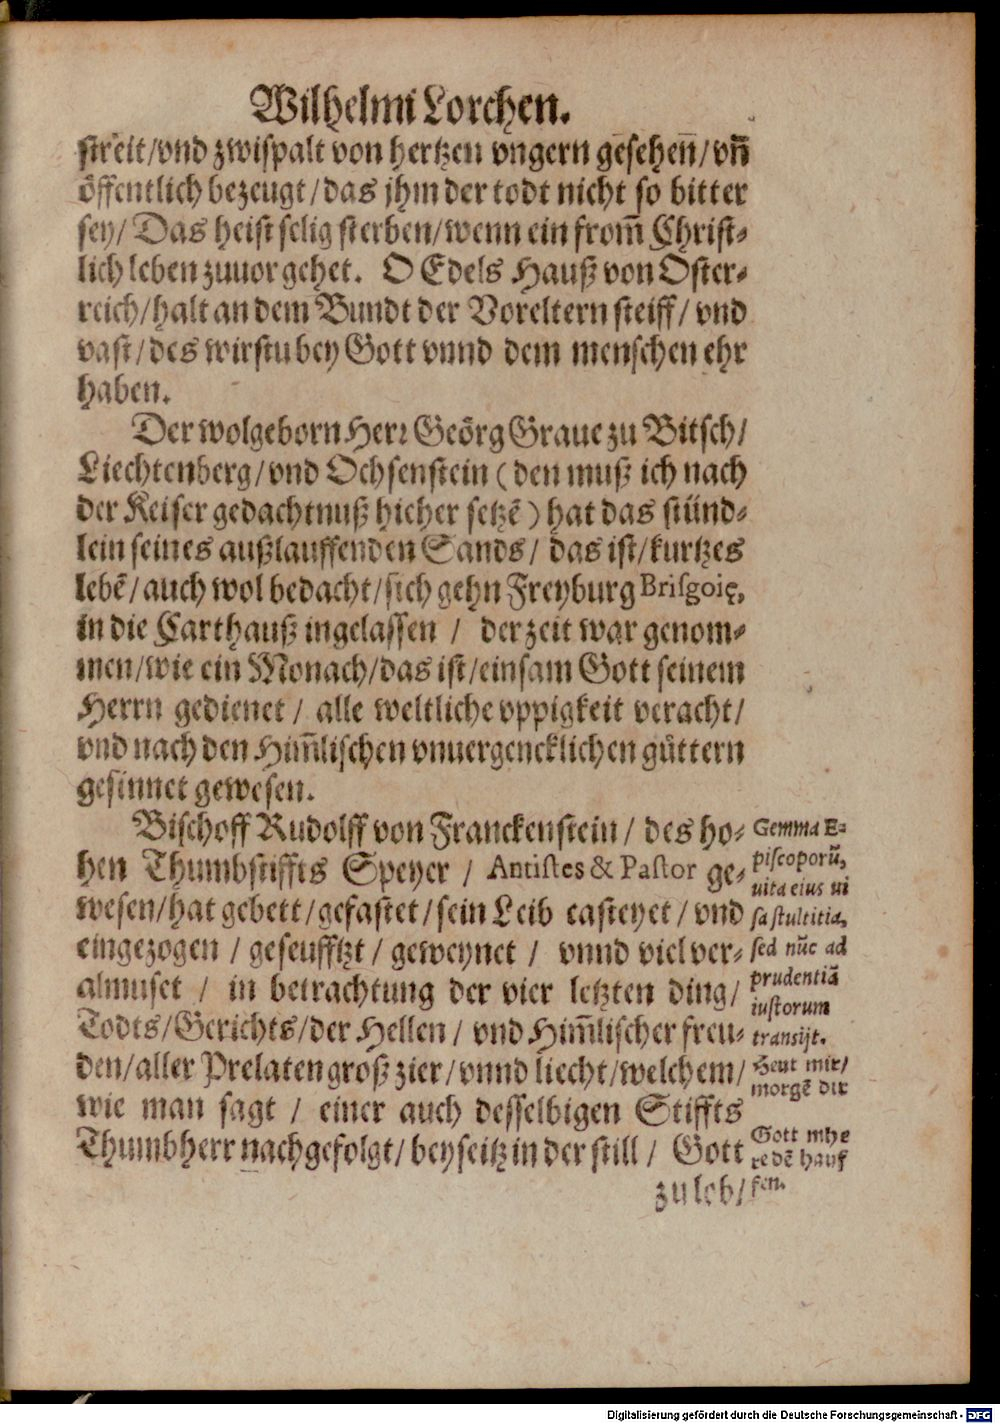 Wilhelmi Lorchen.
streit/vnd zwispalt von hertzen vngern gesehen/vn̄
öffentlich bezeugt/das jhm der todt nicht so bitter
sey/ Das heist selig sterben/wenn ein from̄ Christ⸗
lich leben zuuor gehet. O Edels Hauß von Oster⸗
reich/halt an dem Bundt der Voreltern steiff/ vnd
vast/des wirstu bey Gott vnnd dem menschen ehr
haben.
Der wolgeborn Herr Geörg Graue zu Bitsch/
Liechtenberg/vnd Ochsenstein (den muß ich nach
der Keiser gedachtnuß hieher setzē) hat das stünd⸗
lein seines außlauffenden Sands/ das ist/kurtzes
lebē/auch wol bedacht/sich gehn Freyburg Brisgoię,
in die Carthauß ingelassen / der zeit war genom⸗
men/wie ein Monach/das ist/einsam Gott seinem
Herrn gedienet/ alle weltliche vppigkeit veracht/
vnd nach den Him̄lischen vnuergencklichen güttern
gesinnet gewesen.
Bischoff Rudolff von Franckenstein/ des ho⸗
hen Thumbstiffts Speyer / Antistes & Pastor ge⸗
wesen/hat gebett/gefastet/sein Leib casteyet/vnd
eingezogen / geseufftzt / geweynet / vnnd viel ver⸗
almuset / in betrachtung der vier letzten ding/
Todts/Gerichts/der Hellen/ vnd Him̄lischer freu⸗
den/aller Prelaten groß zier/vnnd liecht/welchem/
wie man sagt / einer auch desselbigen Stiffts
Thumbherr nachgefolgt/beyseitz in der still/ Gott
zu lob/
Gemma E⸗
piscoporū,
uita eius ui
sa stultitia,
sed nūc ad
prudentiā
iustorum
transijt.
Heut mir/
morgē dir
Gott mhe
re dē hauf
fen.
Digitalisierung gefördert durch die Deutsche Forschungsgemeinschaft - DFG